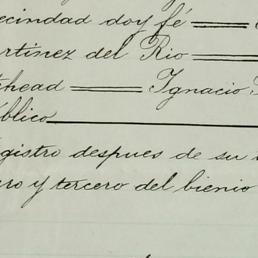 ecindad doy fé
artinez del Rio
ehead Ignacio
blico
gistro despues de su
ero y tercero del bienio